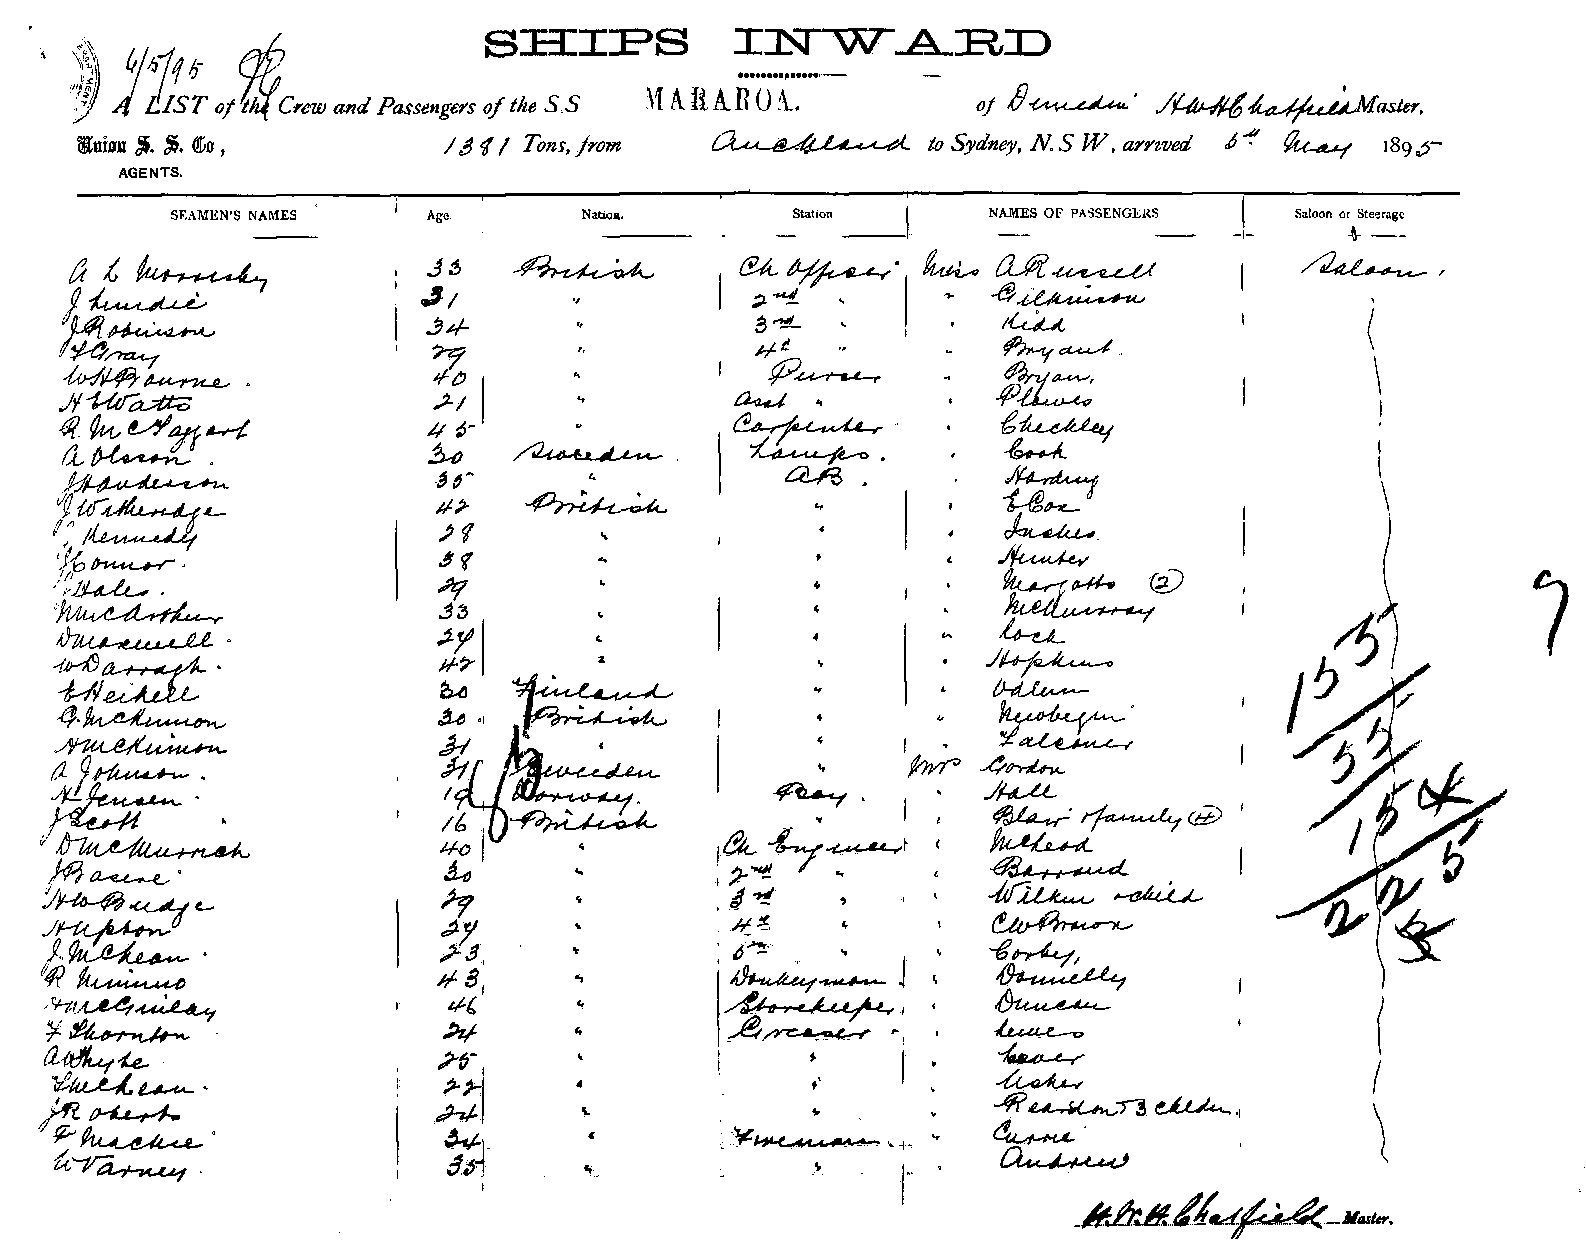 SHIPS INWARD
6/5/95
A LIST of the Crew and Passengers of the S.S MARAROA. of Dunedin H W H Chatfield Master,
Union S. S. Co, 1381 Tons, from Auckland to Sydney, N.S W, arrived 5th May 1895
AGENTS.
SEAMEN'S NAMES Age. Nation. Station NAMES OF PASSENGERS Saloon or Steerage
A L Moresby 33 British Ch Officer Miss A Russell Saloon.
J Lundie 31 " 2nd " " Gilkinson
J Robinson 34 " 3rd " " Kidd
F Gray 29 " 4th " " Bryant.
W H Bourne. 40 " Purser " Bryan,
H E Watts 21 " Asst " " Plowes
R McTaggart 45 " Carpenter " Checkley
A Olsson. 30 Sweden. Lamps. " Cook
J Handerson 35 " AB. " Harding
J Witheridge 42 British " " E Cox
" Kennedy 28 " " " Inskes
J Connor. 38 " " " Hunter
" Hales. 29 " " " Margatts (2)
N McArthur 33 " " " McMurray
D Maxwell. 24 " " " Lock
W Darragh. 42 " " " Hopkins
E Heikell 30 Finland " " Odlum
G. McKinnon 30. British " " Newbegin
A McKinnon 31 " " " Falconer
A Johnson. 31 Sweeden " Mrs Gordon
N Jensen. 19 Norway. Boy. " Hall
J Scott 16 British " " Blair & family (4)
D McMurrich 40 " Ch Engineer " McLeod
J Basire 30 " 2nd " " Barraud
H W Budge 29 " 3rd " " Wilkin & child
H Upton 24 " 4th " " C W Brown
J. McLean. 23 " 5th " " Corby,
R Nimmo 43 " Donkeyman. " Donnelly
H McGinley 46 " Storekeeper, " Duncan
F Thornton 24 " Greaser " Lewes
A Whyte 25 " " "
" McLean. 22 " " " Usher
J Roberts 24 " " " Reardon & 3 Childn.
F Mackie 34 " Fireman. " Currie
W Varney. 35 " " " Andrew
9
155
55
154
225
H.W.H. Chatfield Master.